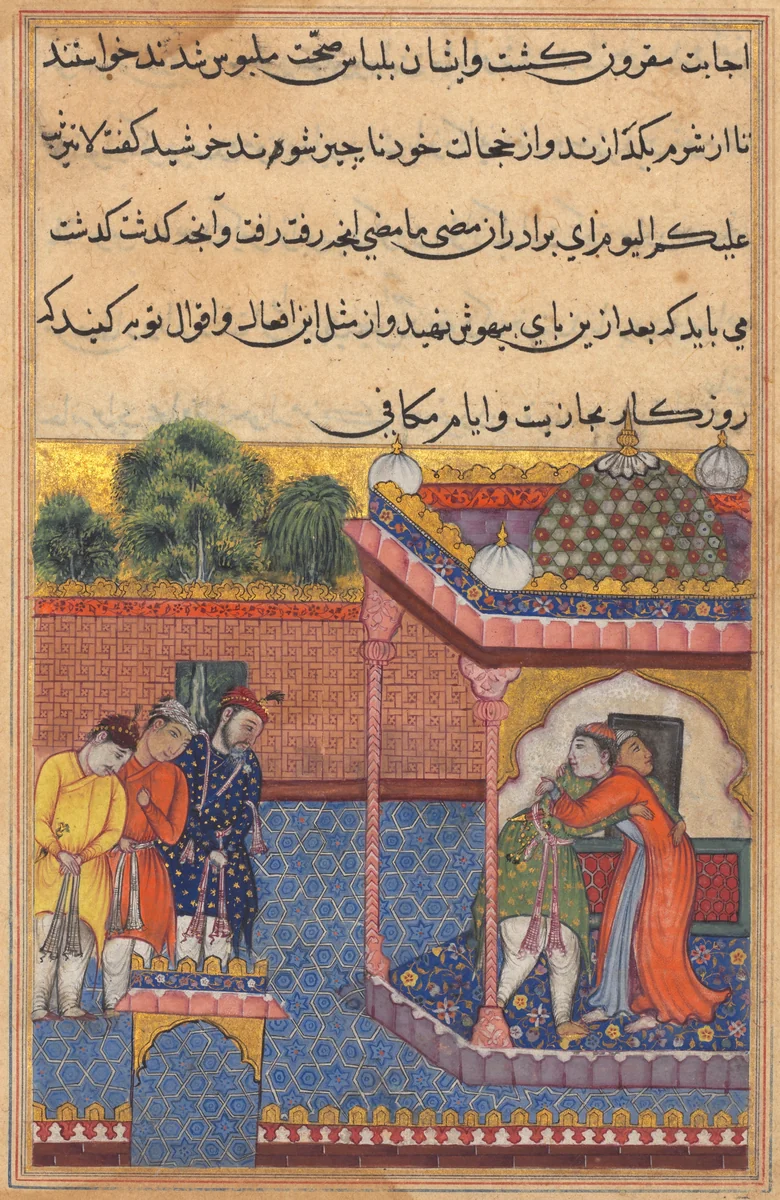 اجابت مقرون کشت وایشان بلباس صحّت ملبوس شدند خواستند
تا از شرم بکدازند و از خجالت خود ناچیز شوند خرشید کفت لا تثریب
علیکم الیوم ای برادران مضی ما مضی انجه رفت رفت وآنجه کدشت کدشت
می باید که بعد ازین بای بیهوش نهید و از مثل این افعال و اقوال توبه کنید که
روزکار مجازیست و ایام مکافی